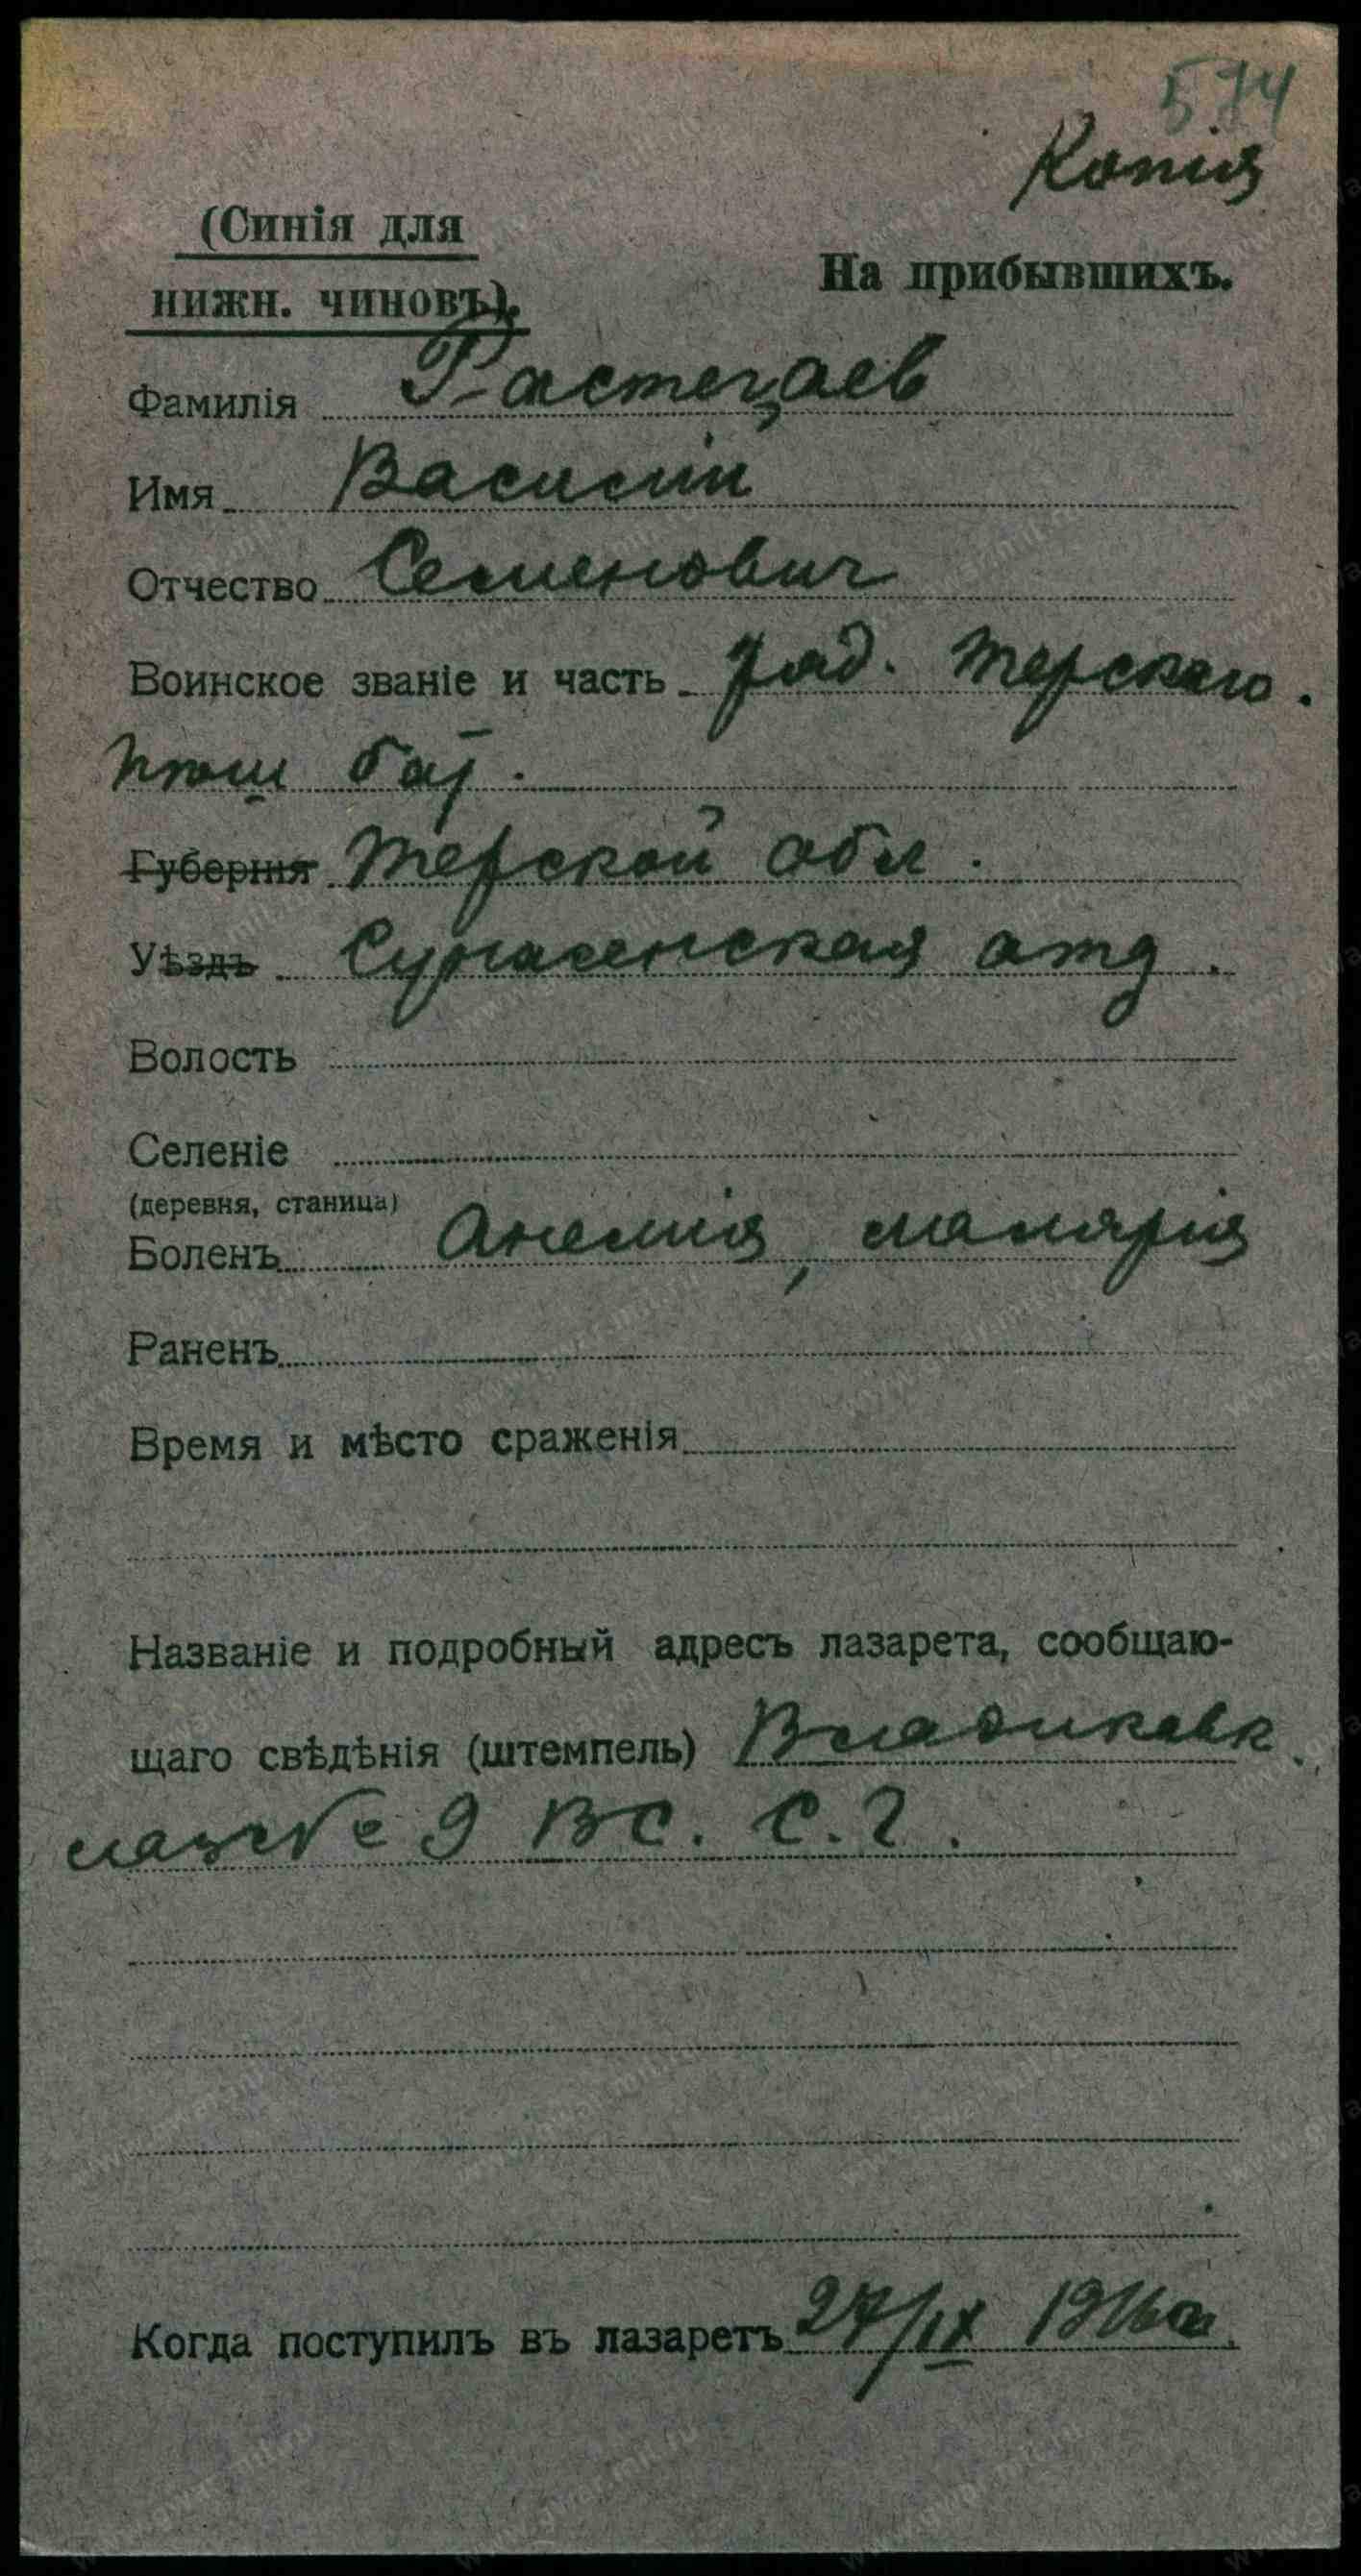 574
Копія
(Синія для
нижн. чиновъ).
На прибывшихъ.
Фамилія Растегаев
Имя Василій
Отчество Семенович
Воинское званіе и часть ряд. Терскаго.
пѣш бат.
Губернія Терской обл.
Уѣздъ Сунженская отд.
Волость
Селеніе
(деревня, станица)
Боленъ Анемия, малярия
Раненъ
Время и мѣсто сраженія
Названіе и подробный адресъ лазарета, сообщаю-
щаго свѣдѣнія (штемпель) Владикавк.
лаз № 9 ВС. С. Г.
Когда поступилъ въ лазаретъ 27/IX 1916